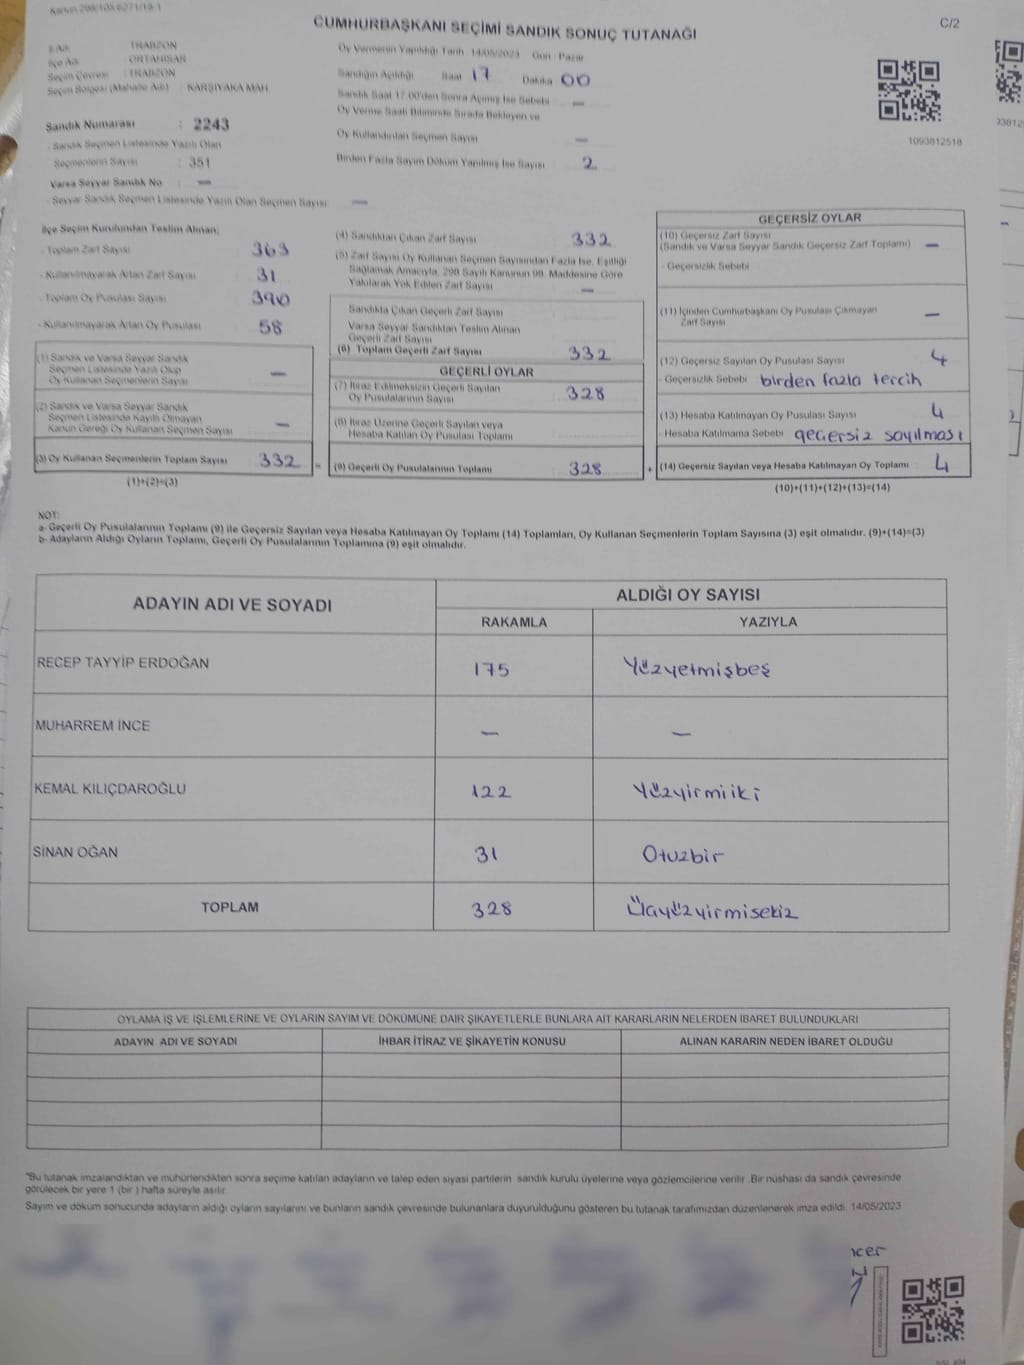 Kanun 298/105-6271/19-1
CUMHURBAŞKANI SEÇİMİ SANDIK SONUÇ TUTANAĞI
C/2
İl Adı : TRABZON
İlçe Adı : ORTAHİSAR
Seçim Çevresi : TRABZON
Seçim Bölgesi (Mahalle Adı) : KARŞIYAKA MAH
Sandık Numarası : 2243
- Sandık Seçmen Listesinde Yazılı Olan
Seçmenlerin Sayısı : 351
Varsa Seyyar Sandık No : —
- Seyyar Sandık Seçmen Listesinde Yazılı Olan Seçmen Sayısı —
Oy Vermenin Yapıldığı Tarih 14/05/2023 Gün : Pazar
Sandığın Açıldığı Saat 17 Dakika 00
Sandık Saat 17:00'den Sonra Açılmış İse Sebebi —
Oy Verme Saati Bitiminde Sırada Bekleyen ve
Oy Kullandırılan Seçmen Sayısı —
Birden Fazla Sayım Döküm Yapılmış İse Sayısı 2
1093812518
İlçe Seçim Kurulundan Teslim Alınan;
- Toplam Zarf Sayısı 363
- Kullanılmayarak Artan Zarf Sayısı 31
- Toplam Oy Pusulası Sayısı 390
- Kullanılmayarak Artan Oy Pusulası 58
(1) Sandık ve Varsa Seyyar Sandık
Seçmen Listesinde Yazılı Olup
Oy Kullanan Seçmenlerin Sayısı —
(2) Sandık ve Varsa Seyyar Sandık
Seçmen Listesinde Kayıtlı Olmayan
Kanun Gereği Oy Kullanan Seçmen Sayısı —
(3) Oy Kullanan Seçmenlerin Toplam Sayısı 332
(1)+(2)=(3)
(4) Sandıktan Çıkan Zarf Sayısı 332
(5) Zarf Sayısı Oy Kullanan Seçmen Sayısından Fazla İse, Eşitliği
Sağlamak Amacıyla, 298 Sayılı Kanunun 98. Maddesine Göre
Yakılarak Yok Edilen Zarf Sayısı —
Sandıkta Çıkan Geçerli Zarf Sayısı
Varsa Seyyar Sandıktan Teslim Alınan
Geçerli Zarf Sayısı
(6) Toplam Geçerli Zarf Sayısı 332
GEÇERLİ OYLAR
(7) İtiraz Edilmeksizin Geçerli Sayılan
Oy Pusulalarının Sayısı 328
(8) İtiraz Üzerine Geçerli Sayılan veya
Hesaba Katılan Oy Pusulası Toplamı
= (9) Geçerli Oy Pusulalarının Toplamı 328
GEÇERSİZ OYLAR
(10) Geçersiz Zarf Sayısı
(Sandık ve Varsa Seyyar Sandık Geçersiz Zarf Toplamı) —
- Geçersizlik Sebebi
(11) İçinden Cumhurbaşkanı Oy Pusulası Çıkmayan
Zarf Sayısı —
(12) Geçersiz Sayılan Oy Pusulası Sayısı 4
- Geçersizlik Sebebi birden fazla tercih
(13) Hesaba Katılmayan Oy Pusulası Sayısı 4
- Hesaba Katılmama Sebebi geçersiz sayılması
+ (14) Geçersiz Sayılan veya Hesaba Katılmayan Oy Toplamı 4
(10)+(11)+(12)+(13)=(14)
NOT:
a- Geçerli Oy Pusulalarının Toplamı (9) ile Geçersiz Sayılan veya Hesaba Katılmayan Oy Toplamı (14) Toplamları, Oy Kullanan Seçmenlerin Toplam Sayısına (3) eşit olmalıdır. (9)+(14)=(3)
b- Adayların Aldığı Oyların Toplamı, Geçerli Oy Pusulalarının Toplamına (9) eşit olmalıdır.
ADAYIN ADI VE SOYADI
ALDIĞI OY SAYISI
RAKAMLA YAZIYLA
RECEP TAYYİP ERDOĞAN 175 Yüzyetmişbeş
MUHARREM İNCE — —
KEMAL KILIÇDAROĞLU 122 Yüzyirmiiki
SİNAN OĞAN 31 Otuzbir
TOPLAM 328 Üçyüzyirmisekiz
OYLAMA İŞ VE İŞLEMLERİNE VE OYLARIN SAYIM VE DÖKÜMÜNE DAİR ŞİKAYETLERLE BUNLARA AİT KARARLARIN NELERDEN İBARET BULUNDUKLARI
ADAYIN ADI VE SOYADI İHBAR İTİRAZ VE ŞİKAYETİN KONUSU ALINAN KARARIN NEDEN İBARET OLDUĞU
*Bu tutanak imzalandıktan ve mühürlendikten sonra seçime katılan adayların ve talep eden siyasi partilerin sandık kurulu üyelerine veya gözlemcilerine verilir. Bir nüshası da sandık çevresinde
görülecek bir yere 1 (bir ) hafta süreyle asılır.
Sayım ve döküm sonucunda adayların aldığı oyların sayılarını ve bunların sandık çevresinde bulunanlara duyurulduğunu gösteren bu tutanak tarafımızdan düzenlenerek imza edildi. 14/05/2023